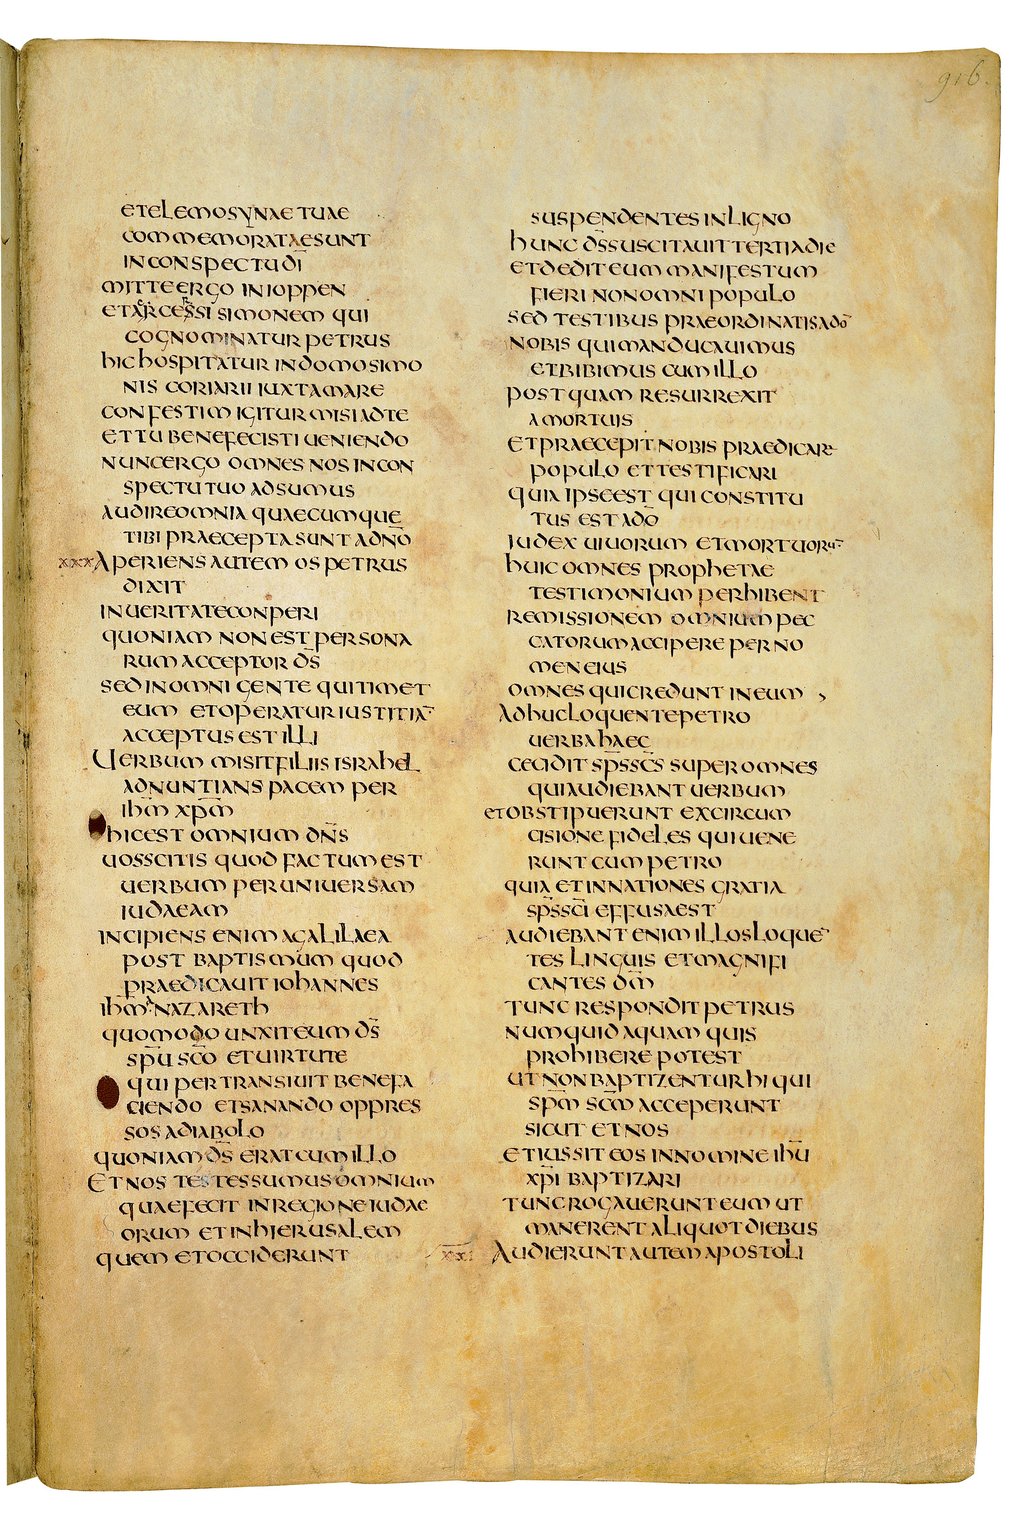 916.
et elemosynae tuae
commemoratae sunt
in conspectu dī
mitte ergo in ioppen
et arcessi simonem qui
cognominatur petrus
hic hospitatur in domo simo
nis coriarii iuxta mare
confestim igitur misi ad te
et tu benefecisti ueniendo
nunc ergo omnes nos in con
spectu tuo adsumus
audire omnia quaecumque
tibi praecepta sunt a dn̄o
xxx aperiens autem os petrus
dixit
in ueritate conperi
quoniam non est persona
rum acceptor d̄s
sed in omni gente qui timet
eum et operatur iustitiā
acceptus est illi
Uerbum misit filiis israhel
adnuntians pacem per
ih̄m xp̄m
hic est omnium dn̄s
uos scitis quod factum est
uerbum per uniuersam
iudaeam
incipiens enim a galilaea
post baptismum quod
praedicauit iohannes
ih̄m a nazareth
quomodo unxit eum d̄s
sp̄u sc̄o et uirtute
qui pertransiuit benefa
ciendo et sanando oppres
sos a diabolo
quoniam d̄s erat cum illo
Et nos testes sumus omnium
quae fecit in regione iudae
orum et in hierusalem
quem et occiderunt
suspendentes in ligno
hunc d̄s suscitauit tertia die
et dedit eum manifestum
fieri non omni populo
sed testibus praeordinatis a dō
nobis qui manducauimus
et bibimus cum illo
postquam resurrexit
a mortuis
et praecepit nobis praedicar
populo et testificari
quia ipse est qui constitu
tus est a dō
iudex uiuorum et mortuorū
huic omnes prophetae
testimonium perhibent
remissionem omnium pec
catorum accipere per no
men eius
omnes qui credunt in eum
Adhuc loquente petro
uerba haec
cecidit sp̄s sc̄s super omnes
qui audiebant uerbum
et obstipuerunt ex circum
cisione fideles qui uene
runt cum petro
quia et in nationes gratia
sp̄s sc̄i effusa est
audiebant enim illos loquē
tes linguis et magnifi
cantes dm̄
Tunc respondit petrus
numquid aquam quis
prohibere potest
ut non baptizentur hi qui
sp̄m sc̄m acceperunt
sicut et nos
et iussit eos in nomine ih̄u
xp̄i baptizari
tunc rogauerunt eum ut
manerent aliquot diebus
xxxi Audierunt autem apostoli